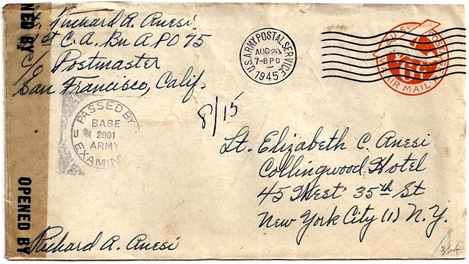 NED BY
OPENED BY
Richard A. Anesi
C.A. Bn APO 75
c/o Postmaster
San Francisco, Calif.
U.S. ARMY POSTAL SERVICE
AUG 20
1945
AIR MAIL
8/15
PASSED BY
BASE
2901
ARMY
EXAMIN
Lt. Elizabeth C. Anesi
Collingwood Hotel
45 West 35th St
New York City (1) N.Y.
Richard A. Anesi